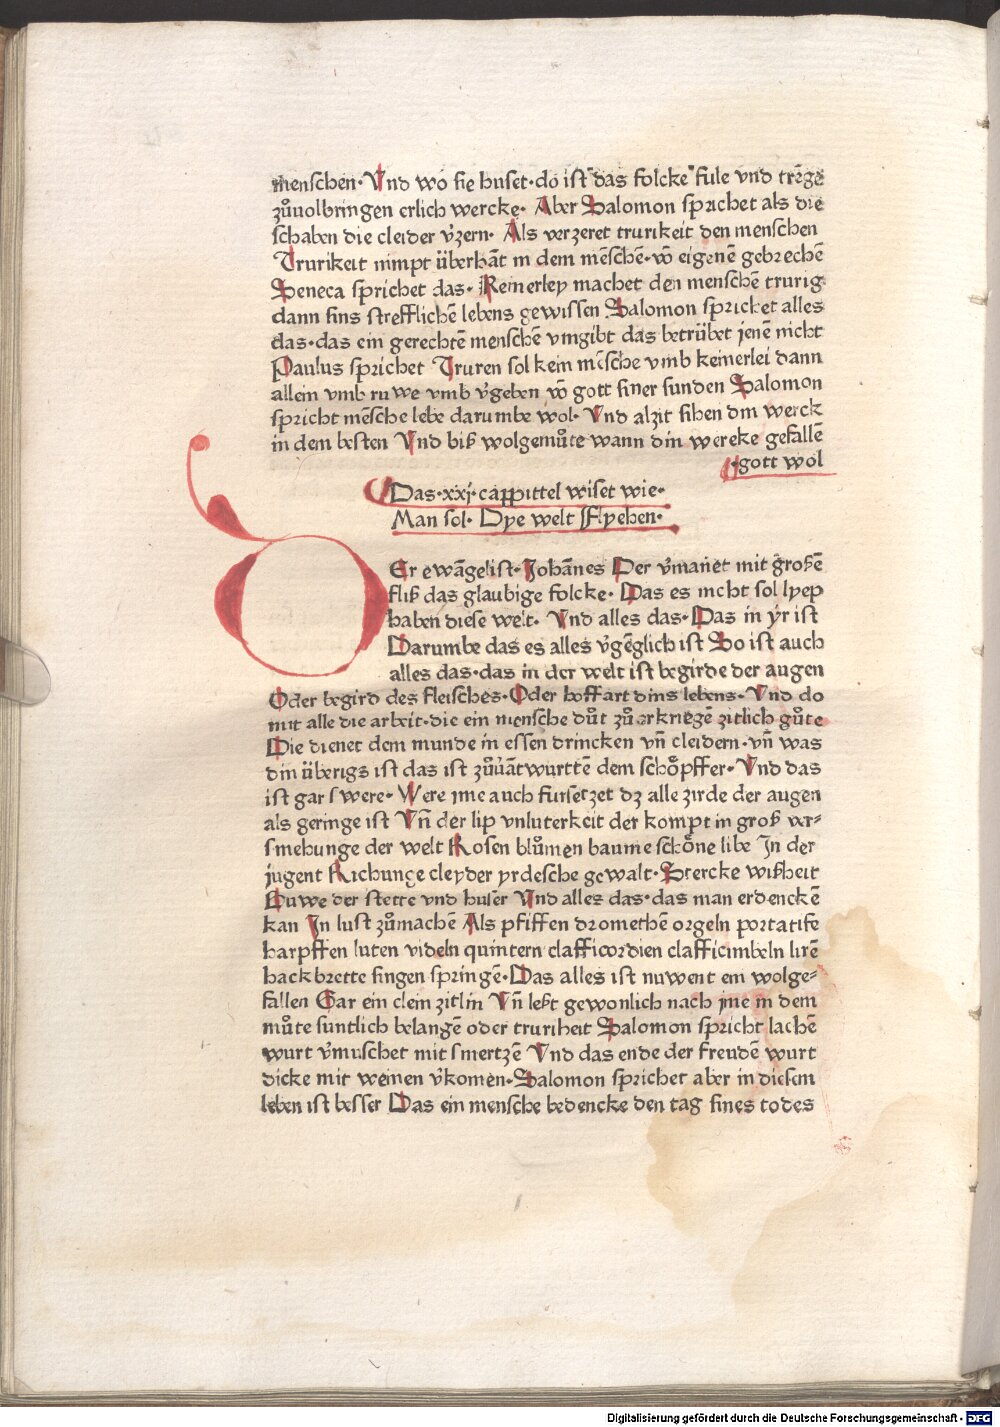 menschen· Vnd wo sie huset·do ist das folcke fule vnd trēge
zůuolbringen erlich wercke· Aber Salomon sprichet als die
schaben die cleider v̓zern· Als verzeret trurikeit den menschen
Trurikeit nimpt überhāt in dem mēschē·vō eigenē gebrechē
Seneca sprichet das· Keinerley machet den menschē trurig
dann sins strefflichē lebens gewissen Salomon sprichet alles
das·das ein gerechtē menschē vmgibt das betrübet jenē nicht
Paulus sprichet Truren sol kein mēsche vmb keinerlei dann
allein vmb ruwe vmb v̓geben vō gott siner sunden Salomon
spricht mēsche lebe darumbe wol· Vnd alzit sihen din werck
in dem besten Vnd biß wolgemůte wann din wercke gefallē
·gott wol
Das·xxj·cappittel wiset wie·
Man sol· Dye welt Flyehen·
Er ewāgelist·Johānes Der v̓manet mit großē
fliß das glaubige folcke· Das es nicht sol lyep
haben diese welt· Vnd alles das·Das in yr ist
Darumbe das es alles v̓gēglich ist So ist auch
alles das·das in der welt ist begirde der augen
Oder begird des fleisches·Oder hoffart dins lebens· Vnd do
mit alle die arbeit·die ein mensche důt zů erkriegē zitlich gůte
Die dienet dem munde in essen drincken vñ cleidern·vñ was
din überigs ist das ist zůu̓ātwurttē dem schöpffer· Vnd das
ist gar swere· Were ime auch fursetzet dz alle zirde der augen
als geringe ist Vñ der lip vnluterkeit der kompt in groß ver⸗
smehunge der welt Rosen blůmen baume schöne libe In der
jugent Richunge cleyder yrdesche gewalt·Stercke wißheit
Buwe der stette vnd huser Vnd alles das·das man erdenckē
kan In lust zůmachē Als pfiffen dromethē orgeln portatife
harpffen luten videln quintern clafficordien clafficimbeln lirē
hackbrette singen springē·Das alles ist nuwent ein wolge⸗
fallen Gar ein clein zitlin Vñ leßt gewonlich nach jme in dem
můte suntlich belangē oder truriheit Salomon spricht lachē
wurt v̓muschet mit smertzē Vnd das ende der freudē wurt
dicke mit weinen v̓komen·Salomon sprichet aber in diesem
leben ist besser Das ein mensche bedencke den tag sines todes
Digitalisierung gefördert durch die Deutsche Forschungsgemeinschaft - DFG